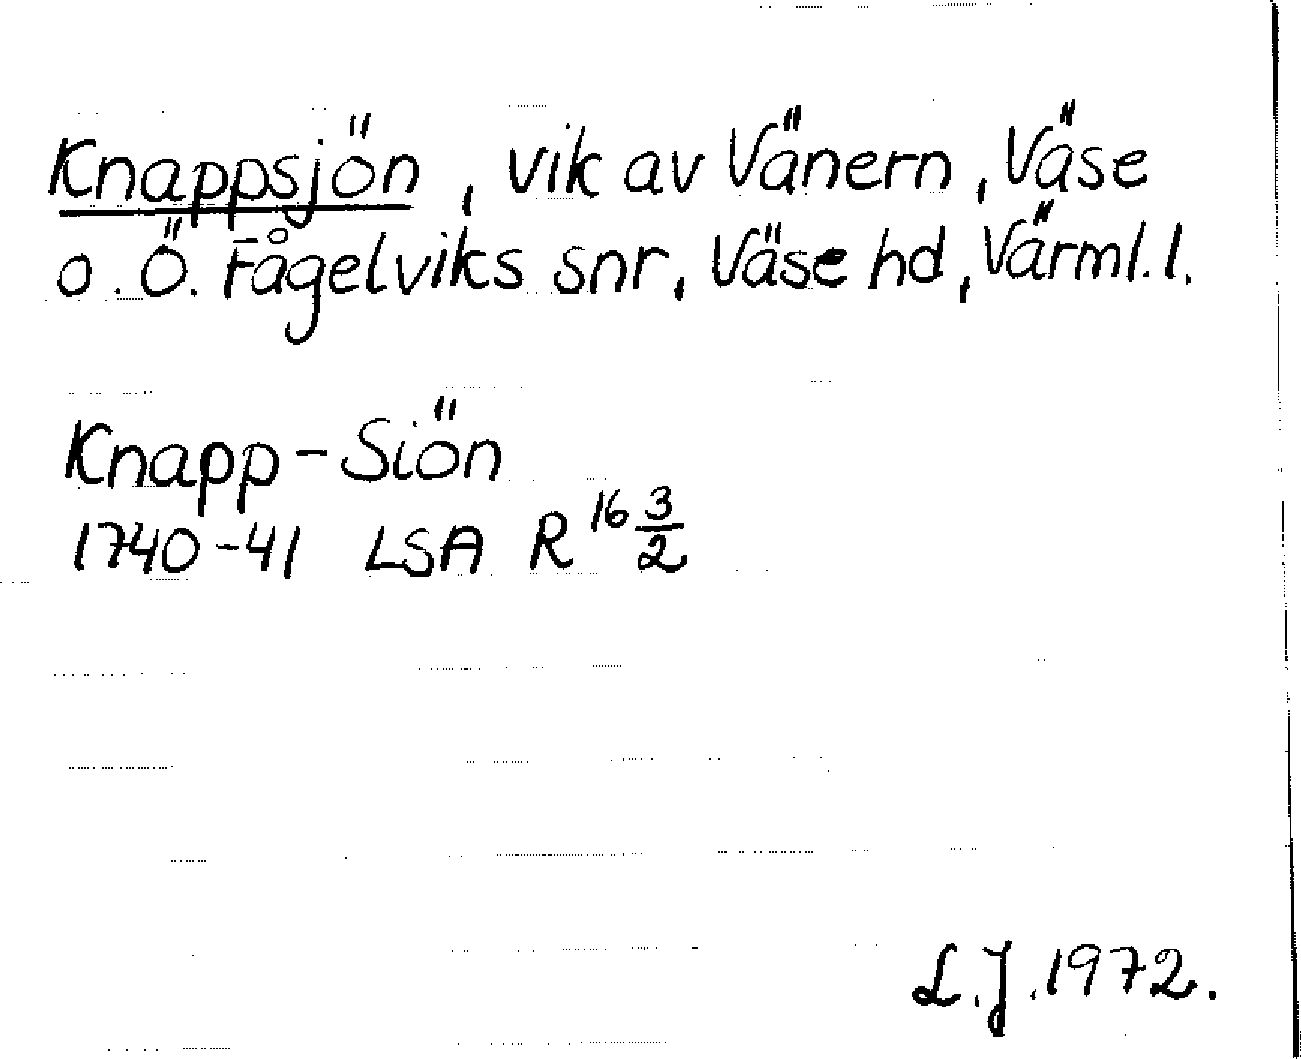 Knappsjön, vik av Vänern, Väse
o. Ö. Fågelviks snr, Väse hd, Värml. l.
Knapp-Siön
1740-41 LSA R 16 3/2
L.J. 1972.